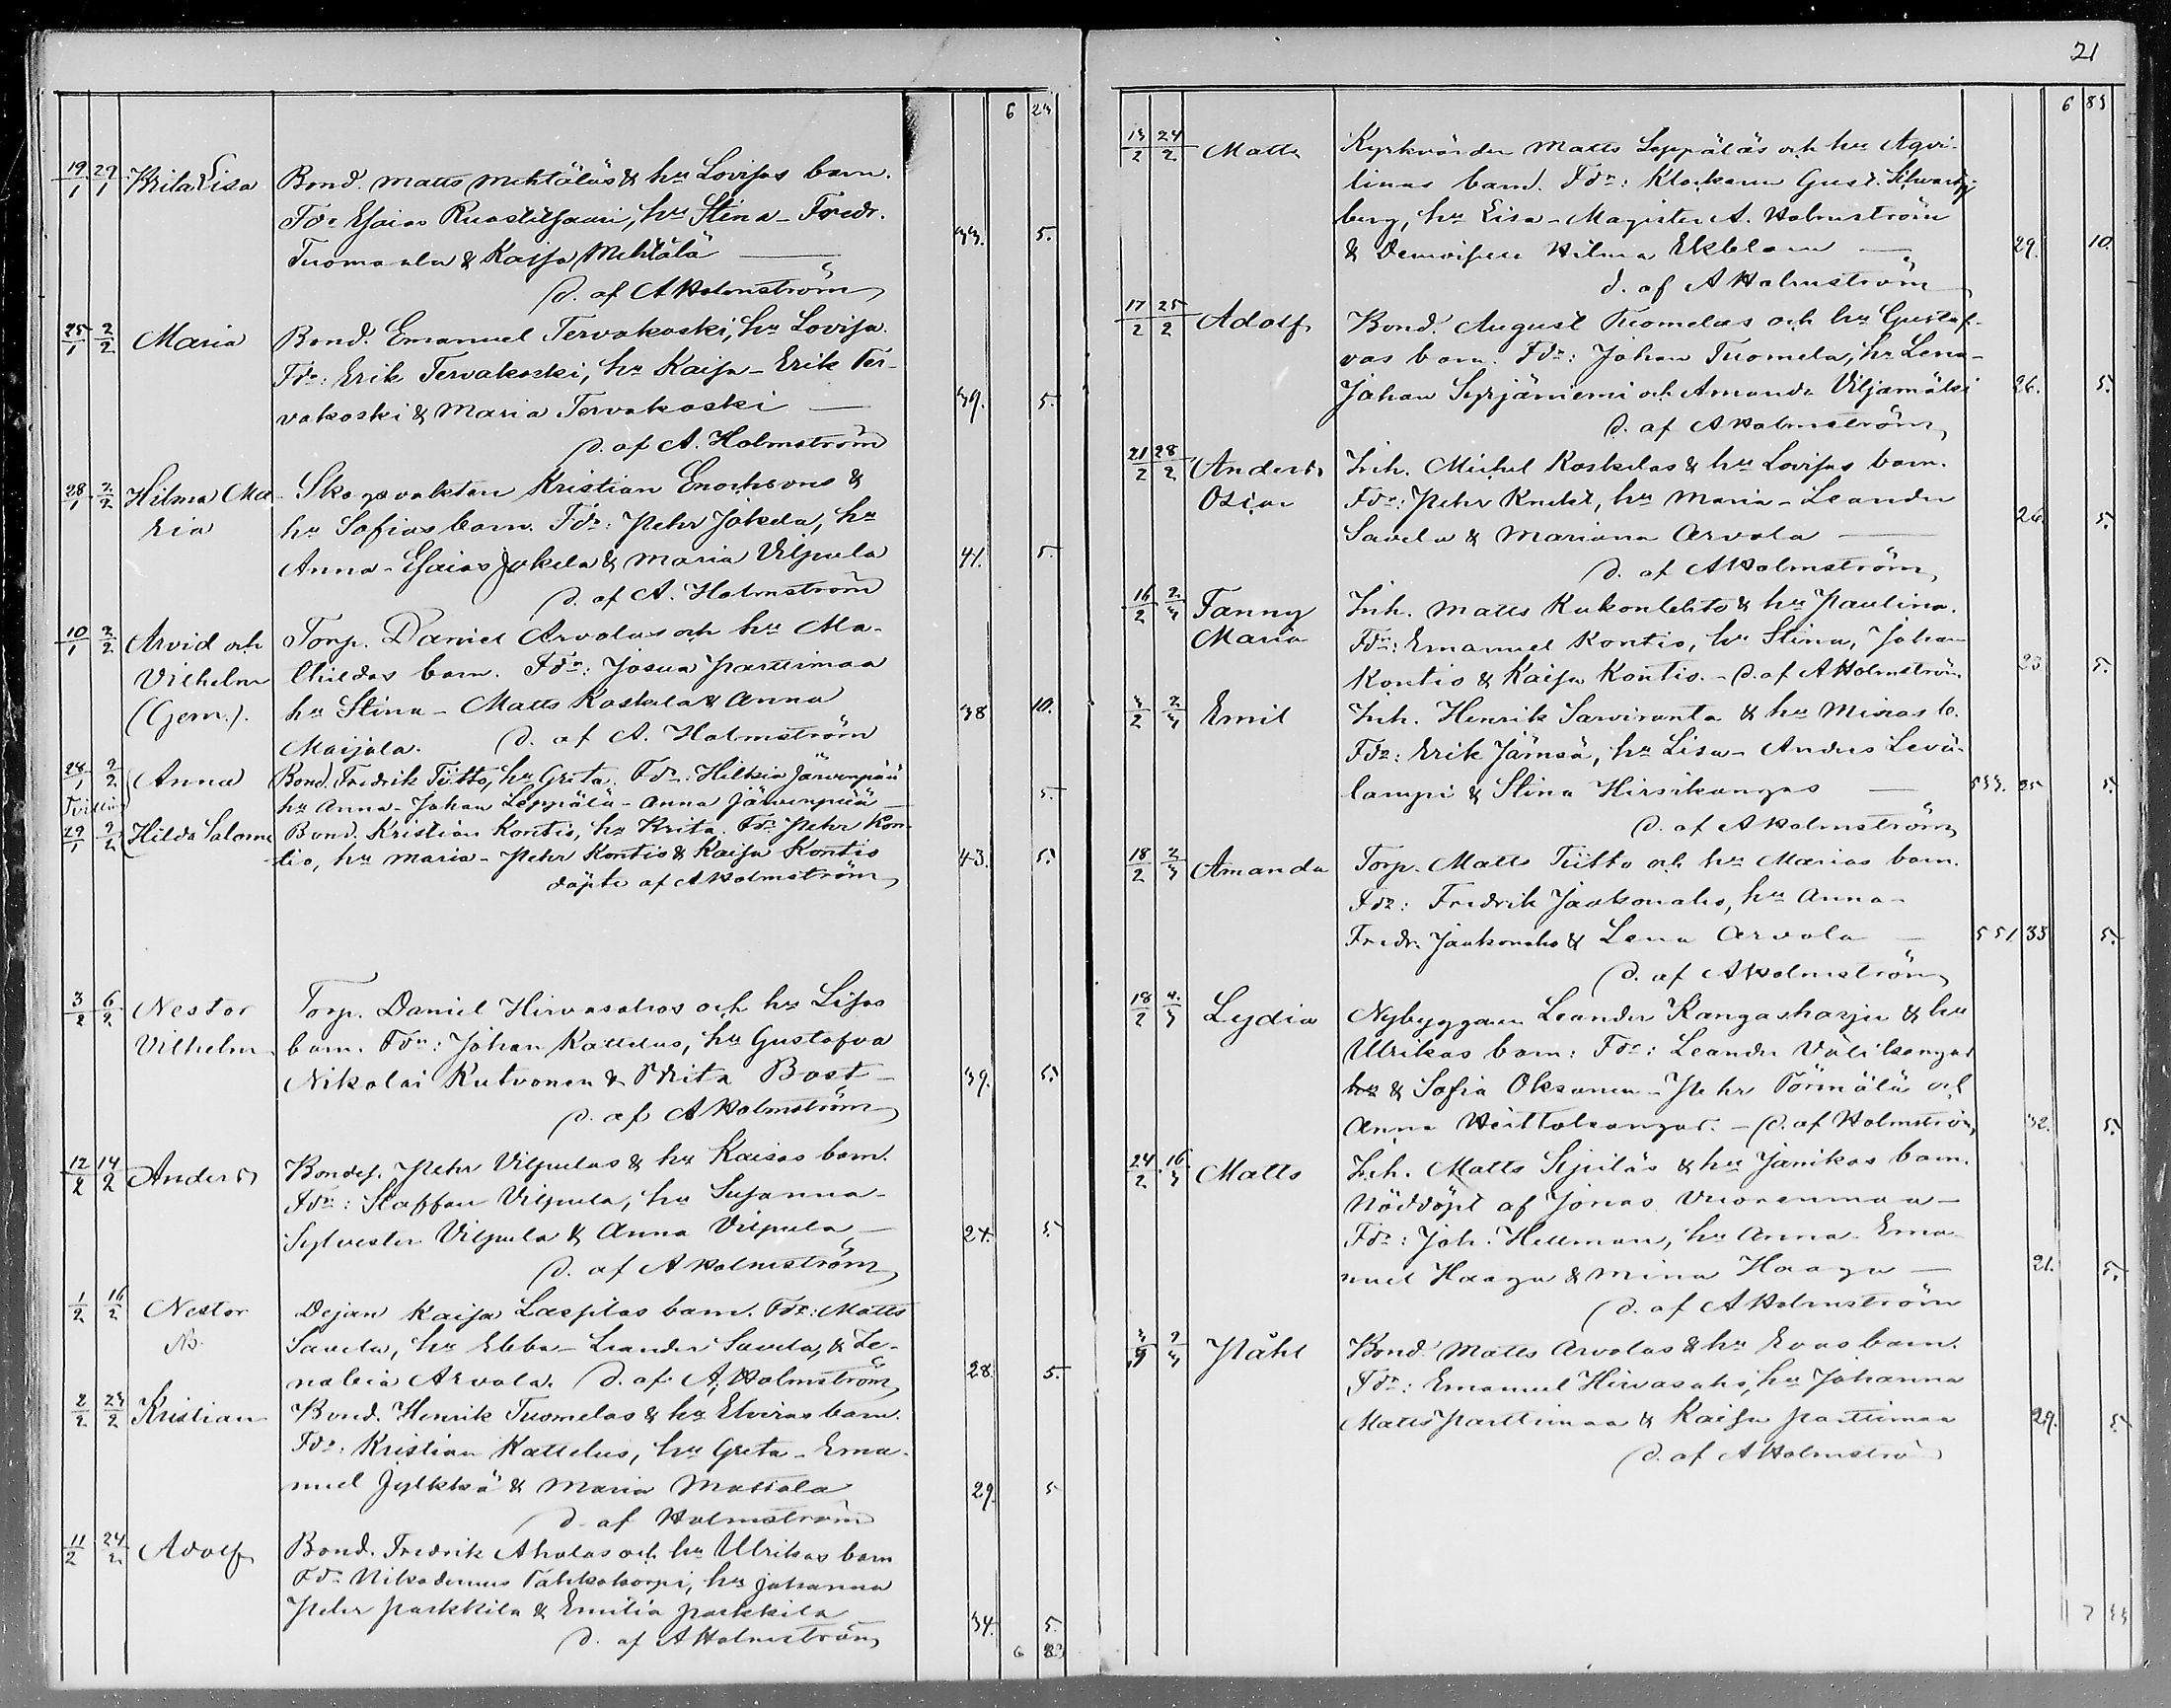 6 23
19/1 27/1 Brita Lisa Bond. Matts Mehtäläs & hu Lovisas barn.
Fdr Esaias Ruostetsaari, hu Stina - Fredr.
Tuomaala & Kaisa Mehtälä — 33. 5.
d. af A Holmström
25/1 2/2 Maria Bond. Emanuel Tervakoski, hu Lovisa.
Fdr: Erik Tervakoski, hu Kaisa - Erik Ter-
vakoski & Maria Tervakoski — 39. 5.
d. af A. Holmström
28/1 2/2 Hilma Ma- Skogsvaktan Kristian Enochsons &
ria hu Sofias barn. Fdr: Pehr Jokela, hu
Anna - Esaias Jokela & Maria Vilpula 41. 5.
d. af A. Holmström
10/1 2/2 Arvid och Torp. Daniel Arvolas och hu Ma-
Vilhelm thildas barn. Fdr: Josua Parttimaa
(Gem.). hu Stina - Matts Koskela & Anna 38 10.
Maijala. d. af A. Holmström
28/1 2/2 Anna Bond. Fredrik Tiitto, hu Greta. Fdr: Hilkia Järvenpää
hu Anna - Johan Leppälä - Anna Järvenpää — 5.
29/1 2/2 Hilda Salome Bond. Kristian Kontio, hu Brita. Fdr Pehr Kon-
tio, hu Maria - Pehr Kontio & Kaisa Kontio 43. 5.
döpte af A Holmström
3/2 6/2 Nestor Torp. Daniel Hirvasahos och hu Lisas
Vilhelm barn. Fdr: Johan Kattelus, hu Gustafva
Nikolai Kutvonen & Brita Bost — 39. 5.
d. af A Holmström
12/2 14/2 Anders Bondes. Pehr Vilpulas & hu Kaisas barn.
Fdr: Staffan Vilpula, hu Susanna -
Sylvester Vilpula & Anna Vilpula — 24. 5.
d. af A Holmström
1/2 16/2 Nestor Dejan Kaisa Laspilas barn. Fdr: Matts
Nb. Savela, hu Ebba - Leander Savela, & Ze-
nobia Arvola. d. af A. Holmström 28. 5.
2/2 23/2 Kristian Bond. Henrik Tuomelas & hu Elviras barn.
Fdr: Kristian Kattelus, hu Greta - Ema-
nuel Jylkkä & Maria Mattala 29. 5
d. af Holmström
11/2 24/2 Adolf Bond. Fredrik Aholas och hu Ulrikas barn
Fdr Nikodemus Pahkakorpi, hu Johanna
Pehr Parkkila & Emilia Parkkila 34. 5.
d. af A Holmström
6 83
21
6 83
13/2 24/2 Matts Kyrkvärden Matts Leppäläs och hu Aqvi-
linas barn. Fdr: Klockaren Gust. Schwartz-
berg, hu Lisa - Magister A. Holmström
& Demoisell Hilma Ekblom — 29. 10.
d. af A Holmström
17/2 25/2 Adolf Bond. August Tuomelas och hu Gustaf-
vas barn. Fdr: Johan Tuomela, hu Lena -
Johan Syrjäniemi och Amanda Viljamäki 26. 5.
d. af A Holmström
21/2 28/2 Anders Inh. Michel Koskelas & hu Lovisas barn.
Oscar Fdr: Pehr Knekt, hu Maria - Leander
Savela & Mariana Arvola — 26. 5.
d. af A Holmström
16/2 2/3 Fanny Inh. Matts Kukonlehto & hu Paulina.
Maria Fdr: Emanuel Kontio, hu Stina, Johan
Kontio & Kaisa Kontio. - d. af A Holmström 23 5.
3/2 2/3 Emil Inh. Henrik Sarviranta & hu Minas b.
Fdr: Erik Jämsä, hu Lisa - Anders Levä-
lampi & Stina Hirsikangas — 533. 25 5.
d. af A Holmström
18/2 2/3 Amanda Torp. Matts Tiitto och hu Marias barn.
Fdr: Fredrik Jaakonaho, hu Anna -
Fredr. Jaakonaho & Lena Arvola — 551 33 5.
d. af A Holmström
18/2 4/3 Lydia Nybyggaren Leander Kangasharju & hu
Ulrikas barn: Fdr: Leander Välikangas
hu & Sofia Oksanen - Pehr Törmälä och
Anna Heittokangas. - d. af Holmström 32. 5.
24/2 16/3 Matts Inh. Matts Sepiläs & hu Janikas barn.
Nöddöpt af Jonas Vuorenmaa -
Fdr: Joh. Hellman, hu Anna - Ema-
nuel Haaga & Mina Haaga — 21. 5.
d. af A Holmström
Påhl Bond. Matts Arvolas & hu Evas barn.
Fdr: Emanuel Hirvasaho, hu Johanna
Matts Parttimaa & Kaisa Parttimaa 29. 5
d. af A Holmströ
7 33